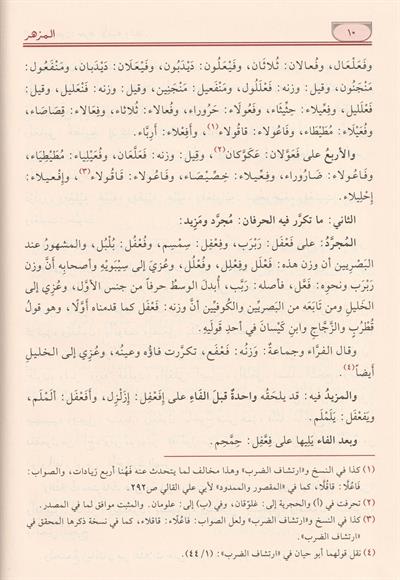 ١٠
المزهر
وفَعَلْعَال، وفُعالان: ثُلاثَان، وفَيْعَلُون: دَيْدَبُون، وفَيْعَلَان: دَيْدَبان، ومَنْفَعُول:
مَنْجَنُون، وقيل: وزنه: فَعْلَلُول، ومَنْفَعيل: مَنْجَنِين، وقيل: وزنه: فَنْعَليل، وقيل:
فَعْلَليل، وفِعِّيلاء: حِثِّيثَاء، وفَعُولَاء: حَرُوراء، وفُعالاء: ثُلاثاء، وفِعَالاء: قِصَاصَاء،
وفُعَيْلَاء: مُطَيْطَاء، وفَاعُولاء: قاقُولاء(١)، وأَفْعِلاء: أَرِبَّاء.
والأربعُ على فَعَوْلَان: عَكَوَّكان(٢)، وقيل: وزنه: فَعَلَّعَان، وفُعَيْلِياء: مُطَيْطِيَاء،
وفَاعُولاء: ضَارُوراء، وفِعِّيلاء: خِصِّيْصَاء، وفَاعُولاء: قَاقُولاء(٣)، وإِفْعيلاء:
إحْلِيلاء.
الثاني: ما تكرَّر فيه الحرفان: مُجرَّد ومَزِيد:
المُجرَّدُ: على فَعْفَل: رَبْرَب، وفِعْفِل: سِمْسِم، وفُعْفُل: بُلْبُل، والمشهورُ عند
البَصْريين أن وزن هذه: فَعْلَل وفِعْلِل، وفُعْلُل، وعُزِيَ إلى سِيْبَوَيْهِ وأصحابِه أنَّ وزن
رَبْرَب ونحوِه: فَعَّل، فأصله: رَبَّب، أُبدلَ الوسطُ حرفاً من جنس الأول، وعُزِي إلى
الخليلِ ومن تَابَعَه من البَصريِّين والكُوفيين أنَّ وزنه: فَعْفَل كما قدمناه أوَّلًا، وهو قولُ
قُطْرُبٍ والزَّجَّاجِ وابنِ كَيْسانَ في أحدِ قولَيهِ.
وقال الفرَّاء وجماعةٌ: وَزنُه: فَعْفَع، تكرَّرت فاؤُه وعينُه، وعُزِي إلى الخليلِ
أيضاً(٤).
والمزيدُ فيه: قد يلحقُه واحدةٌ قبلَ الفَاءِ على إِفْعِفِل: إِزِلْزِل، وأَفَعْفَل: أَلَمْلَم،
ويَفَعْفَل: يَلَمْلَم.
وبعد الفاء يَلِيها على فِعَّفِل: حِمَّحِم.
(١) كذا في النسخ و«ارتشاف الضرب» وهذا مخالف لما يتحدث عنه فَهُنا أربع زيادات، والصواب:
فَاعُلَّا: قاقُلَّا، كما في «المقصور والممدود» لأبي علي القالي ص٢٩٢.
(٢) تحرفت في (أ) والحجرية إلى: عَلَوْقَان، وفي (ب) إلى: علومان. والمثبت موافق لما في المصدر.
(٣) كذا في النسخ و«ارتشاف الضرب» ولعل الصواب: فَاعُلَّاء: قاقلاء، كما في نسخة ذكرها المحقق في
«ارتشاف الضرب».
(٤) نقل قولهما أبو حيان في «ارتشاف الضرب»: (١/ ٤٤).